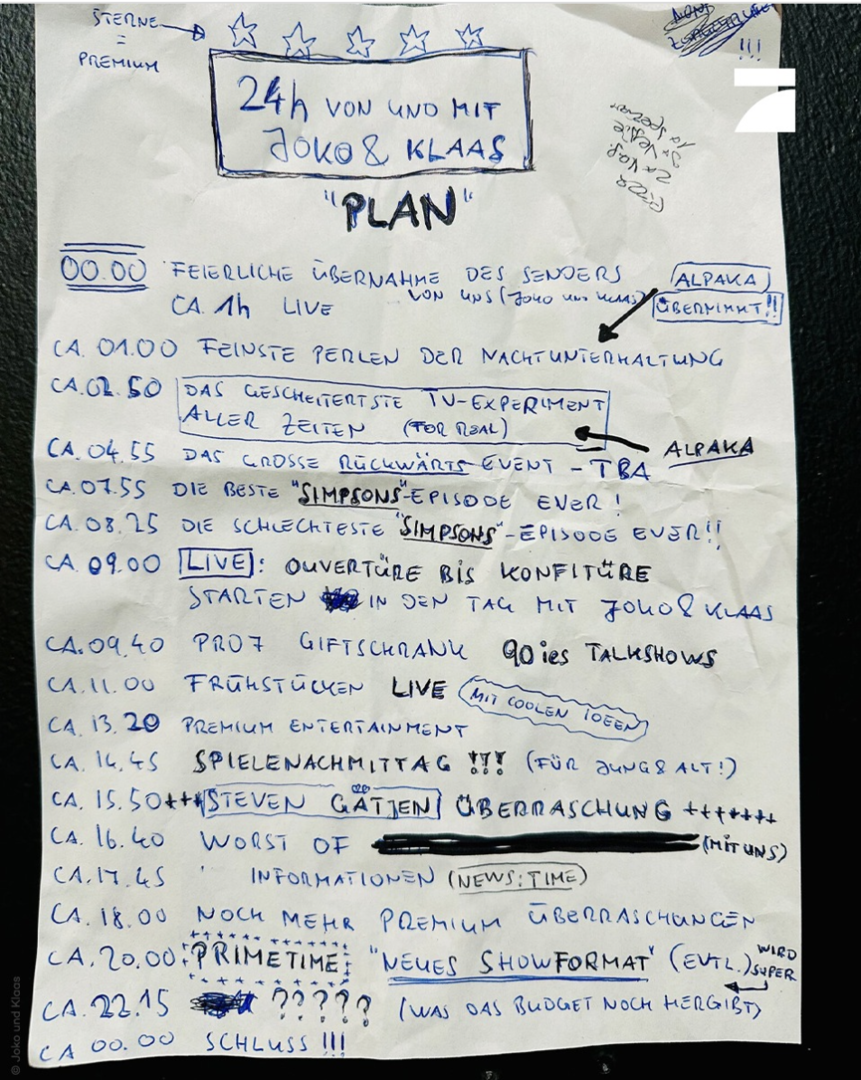 STERNE
=
PREMIUM
!!!
24h VON UND MIT
JOKO & KLAAS
"PLAN"
PIZZA
2x VOR.
3x VEGGIE
00.00 FEIERLICHE ÜBERNAHME DES SENDERS
VON UNS (JOKO UND KLAAS)
CA. 1h LIVE
ALPAKA
ÜBERNIMMT!!
CA. 01.00 FEINSTE PERLEN DER NACHTUNTERHALTUNG
CA. 02.50 DAS GESCHEITERTSTE TV-EXPERIMENT
ALLER ZEITEN (FOR REAL)
ALPAKA
CA. 04.55 DAS GROSSE RÜCKWÄRTS EVENT - TBA
CA. 07.55 DIE BESTE "SIMPSONS"-EPISODE EVER!
CA. 08.25 DIE SCHLECHTESTE "SIMPSONS"-EPISODE EVER!!
CA. 09.00 LIVE: OUVERTÜRE BIS KONFITÜRE
STARTEN IN DEN TAG MIT JOKO & KLAAS
CA. 09.40 PRO7 GIFTSCHRANK 90ies TALKSHOWS
CA. 11.00 FRÜHSTÜCKEN LIVE MIT COOLEN IDEEN
CA. 13.20 PREMIUM ENTERTAINMENT
CA. 14.45 SPIELENACHMITTAG !!! (FÜR JUNG & ALT!)
CA. 15.50 +++ STEVEN GÄTJEN ÜBERRASCHUNG +++++++
CA. 16.40 WORST OF (MIT UNS)
CA. 17.45 INFORMATIONEN (NEWS:TIME)
CA. 18.00 NOCH MEHR PREMIUM ÜBERRASCHUNGEN
CA. 20.00: PRIMETIME: "NEUES SHOWFORMAT" (EVTL.) WIRD
SUPER
CA. 22.15 ????? (WAS DAS BUDGET NOCH HERGIBT)
CA 00.00 SCHLUSS !!!
© Joko und Klaas